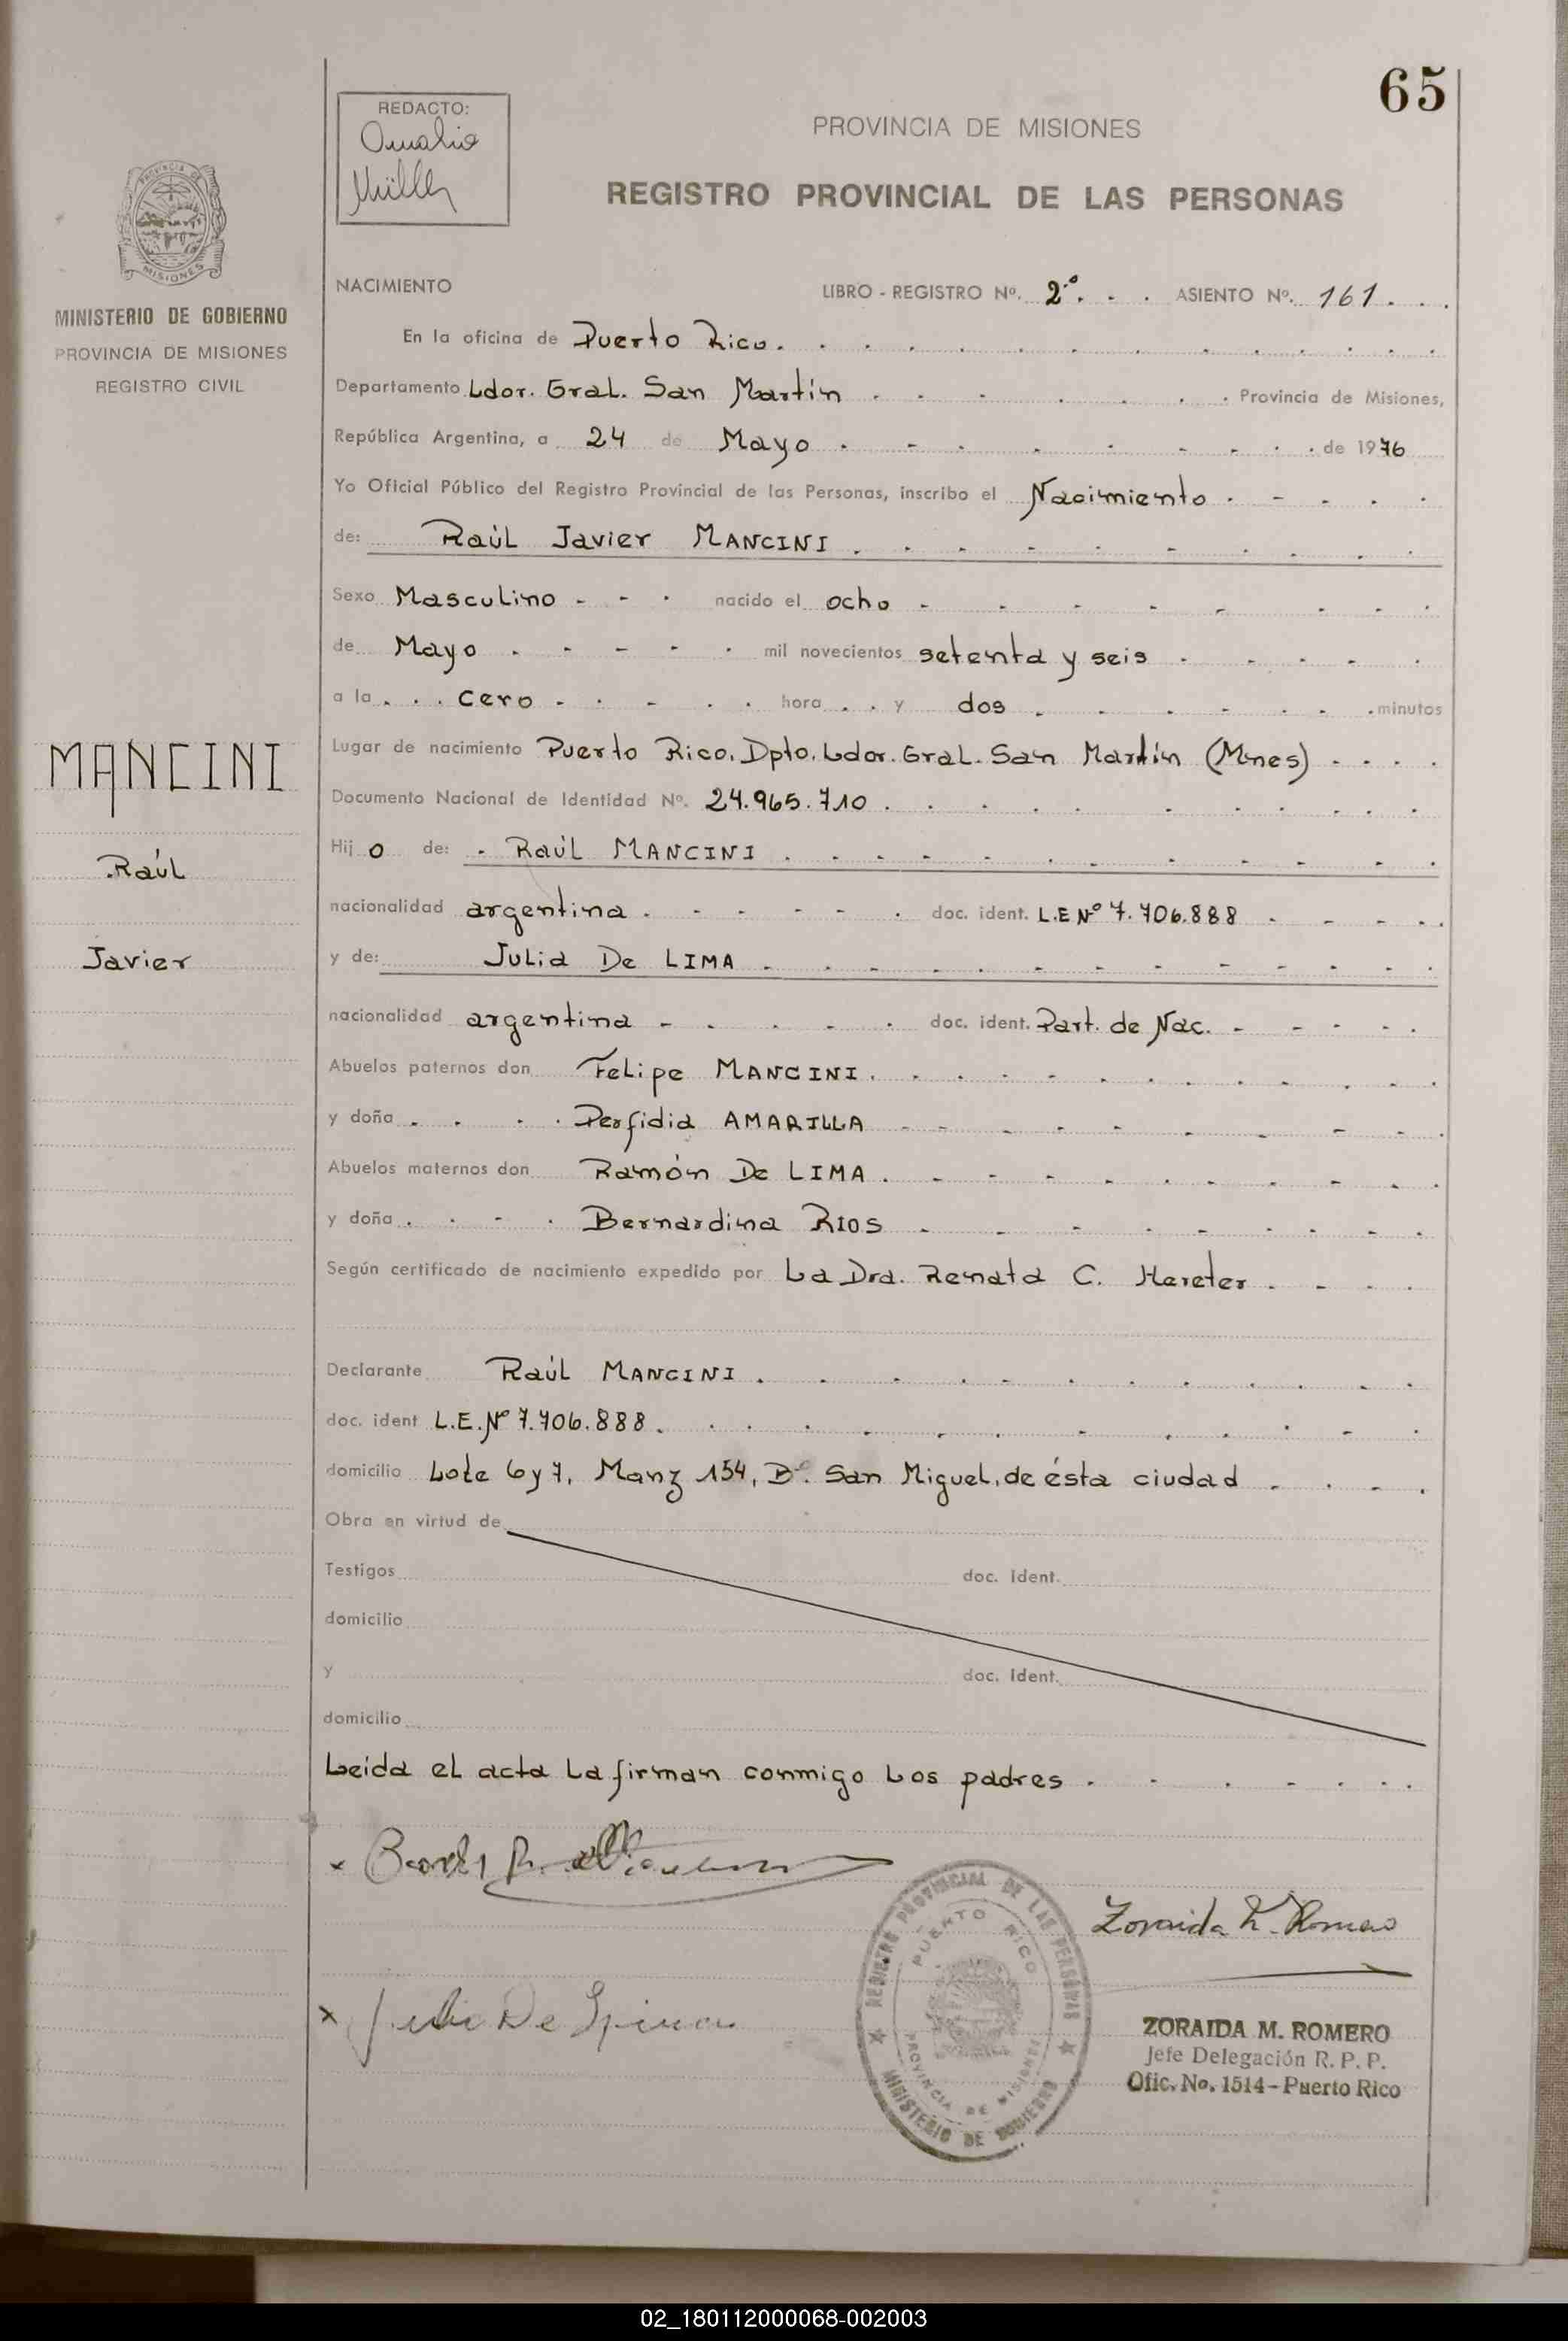 65
REDACTO:
Müller
PROVINCIA DE MISIONES
REGISTRO PROVINCIAL DE LAS PERSONAS
PROVINCIA DE
MISIONES
MINISTERIO DE GOBIERNO
PROVINCIA DE MISIONES
REGISTRO CIVIL
NACIMIENTO LIBRO - REGISTRO Nº. 2º. ASIENTO Nº. 161.
En la oficina de Puerto Rico.
Departamento Ldor. Gral. San Martín Provincia de Misiones,
República Argentina, a 24 de Mayo de 1976
Yo Oficial Público del Registro Provincial de las Personas, inscribo el Nacimiento
de: Raúl Javier MANCINI
Sexo Masculino nacido el ocho
de Mayo mil novecientos setenta y seis
a la cero hora y dos minutos
MANCINI
Raúl
Javier
Lugar de nacimiento Puerto Rico, Dpto. Ldor. Gral. San Martín (Mnes)
Documento Nacional de Identidad Nº. 24.965.710
Hijo de: Raúl MANCINI
nacionalidad argentina doc. ident. L.E Nº 7.706.888
y de: Julia De LIMA
nacionalidad argentina doc. ident. Part. de Nac.
Abuelos paternos don Felipe MANCINI
y doña Perfidia AMARILLA
Abuelos maternos don Ramón De LIMA
y doña Bernardina RIOS
Según certificado de nacimiento expedido por La Dra. Renata C. Hereter
Declarante Raúl MANCINI
doc. ident L.E. Nº 7.706.888
domicilio Lote 6 y 7, Manz 154, Bº. San Miguel, de ésta ciudad
Obra en virtud de
Testigos doc. ident.
domicilio
y doc. ident.
domicilio
Leida el acta la firman conmigo los padres
REGISTRO PROVINCIAL DE LAS PERSONAS
PUERTO RICO
PROVINCIA DE MISIONES
MINISTERIO DE GOBIERNO
Zoraida M. Romero
ZORAIDA M. ROMERO
Jefe Delegación R. P. P.
Ofic. No. 1514 - Puerto Rico
02_180112000068-002003